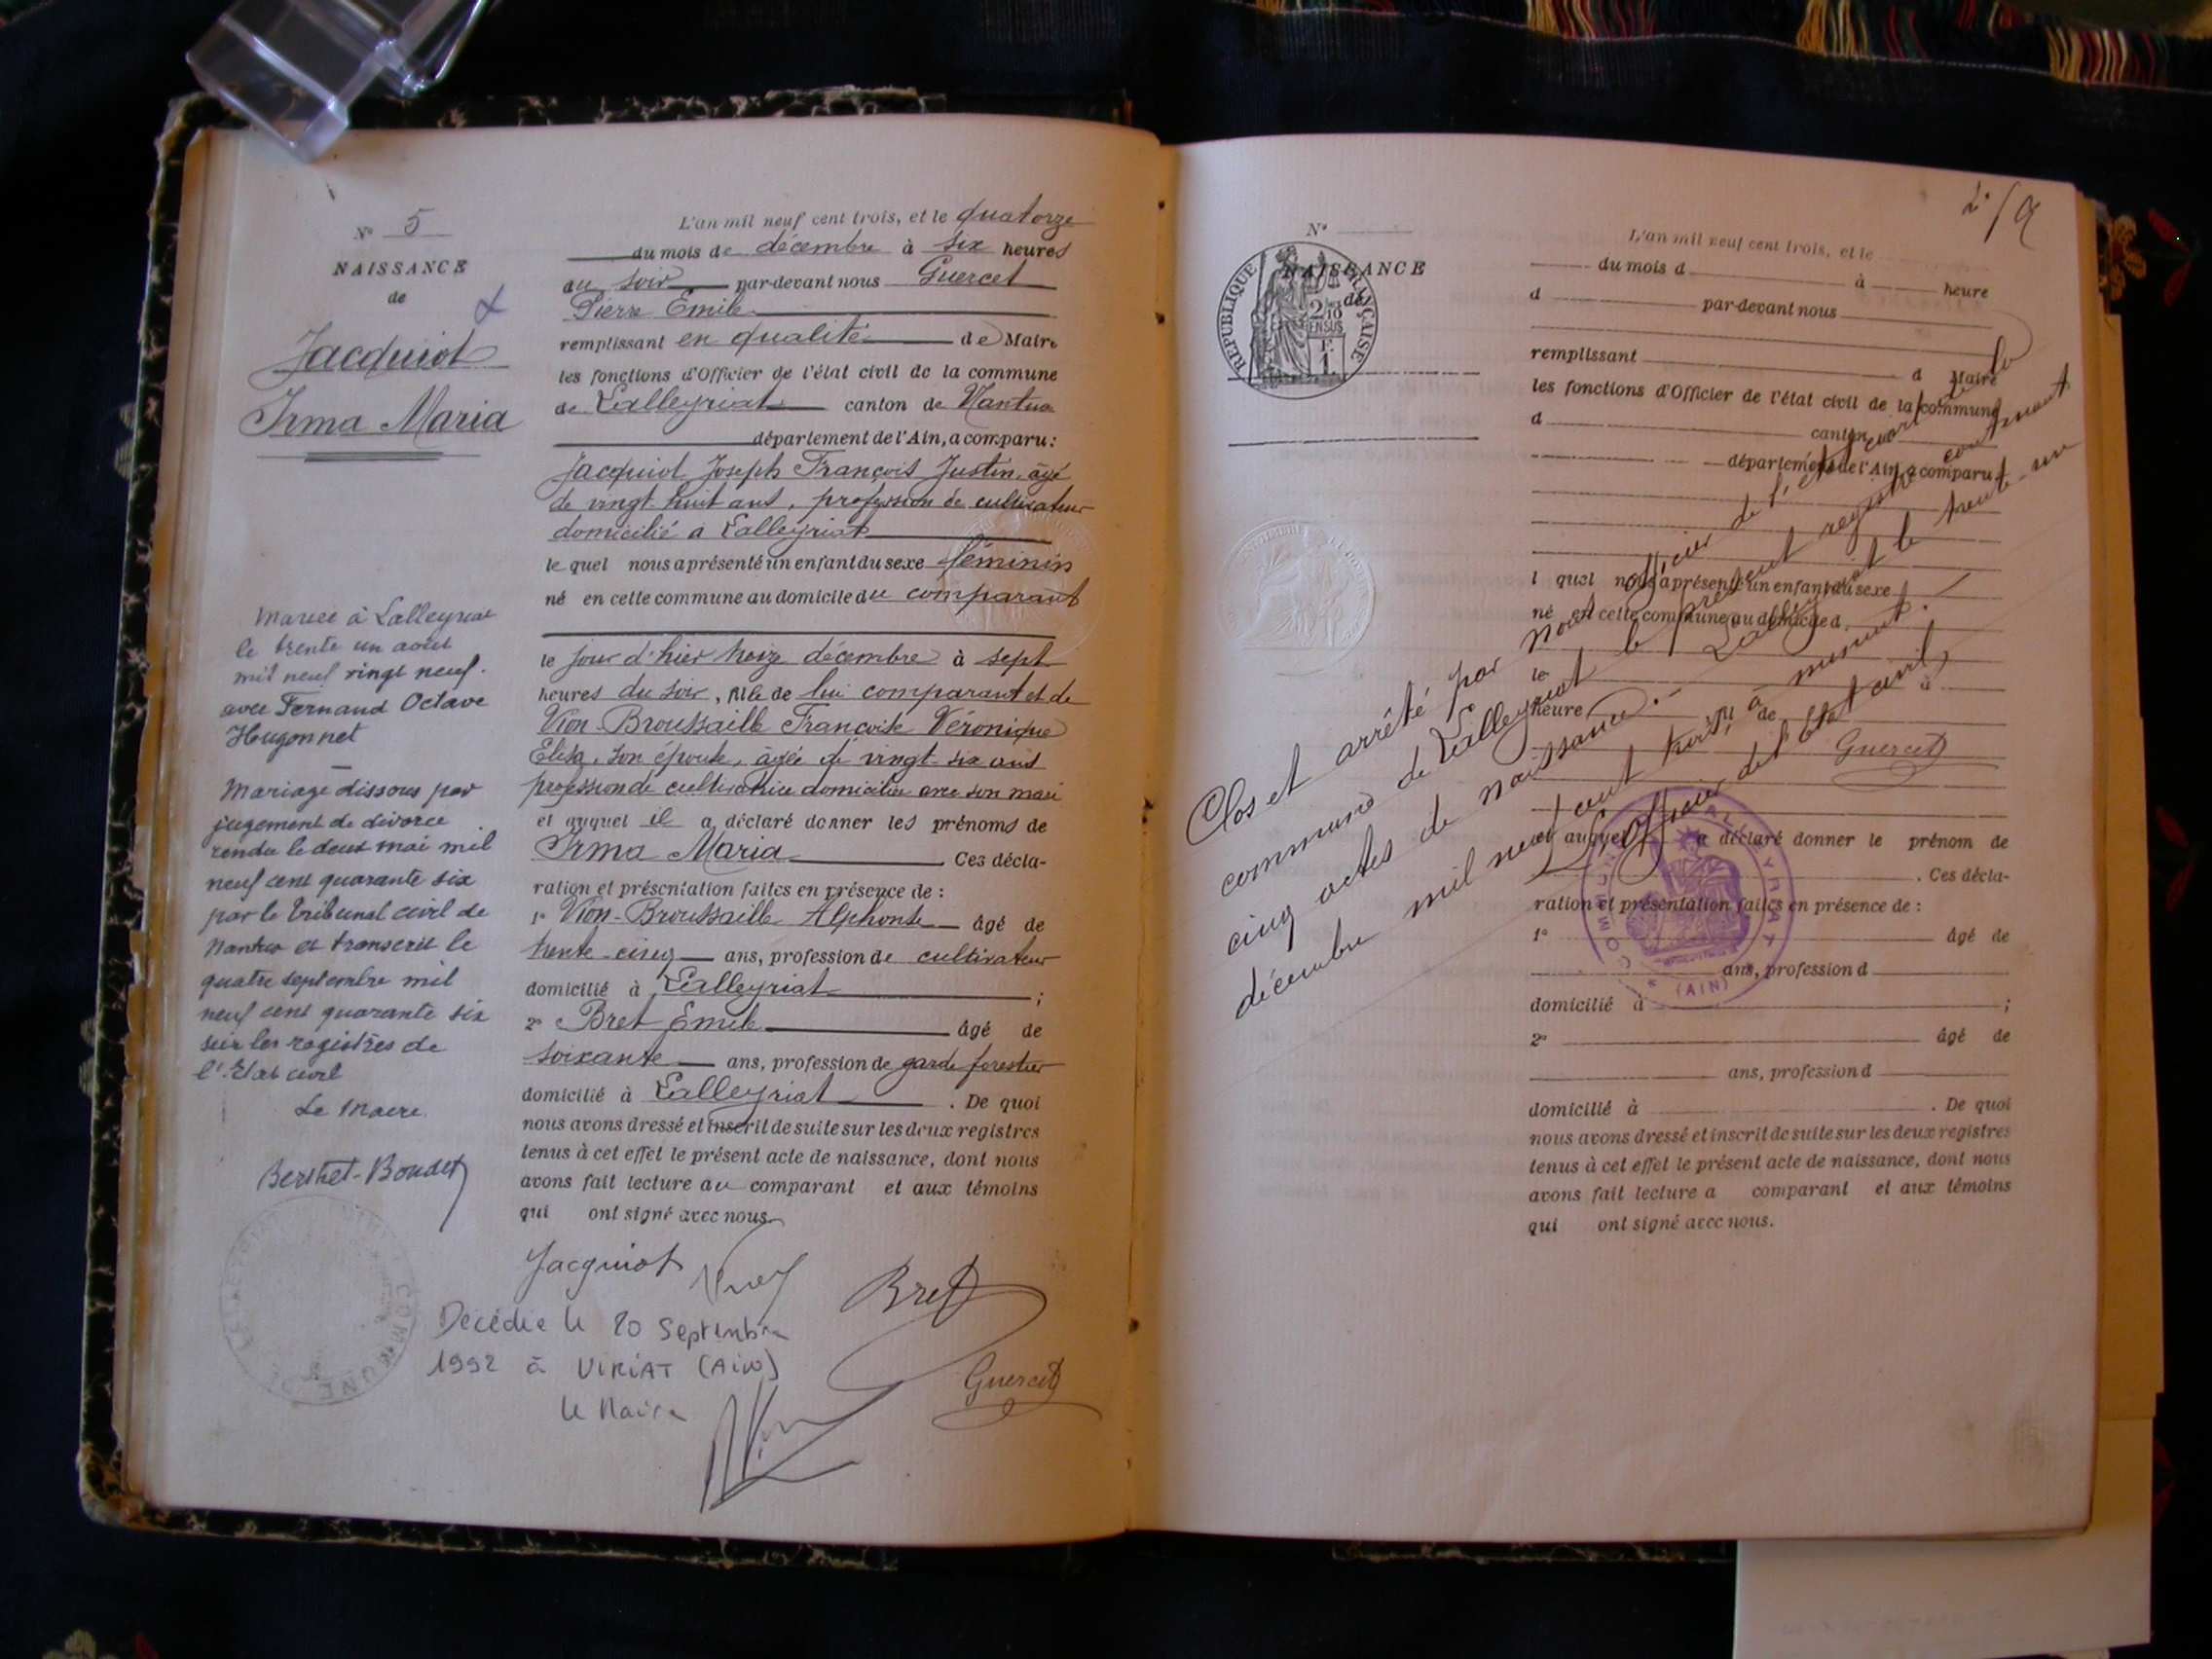 N° 5
NAISSANCE
de
Jacquiot
Irma Maria
Mariée à Lalleyriat
le trente un août
mil neuf vingt neuf.
avec Fernand Octave
Hugonnet
Mariage dissous par
jugement de divorce
rendu le deux mai mil
neuf cent quarante six
par le tribunal civil de
Nantua et transcrit le
quatre septembre mil
neuf cent quarante six
sur les registres de
l'Etat civil
Le Maire
Berthet-Boudet
COMMUNE
L'an mil neuf cent trois, et le quatorze
du mois de décembre à six heures
du soir par-devant nous Guercet
Pierre Emile
remplissant en qualité de Maire
les fonctions d'Officier de l'état civil de la commune
de Lalleyriat canton de Nantua
département de l'Ain, a comparu:
Jacquiot Joseph François Justin, âgé
de vingt huit ans, profession de cultivateur
domicilié à Lalleyriat
le quel nous a présenté un enfant du sexe féminin
né en cette commune au domicile du comparant
le jour d'hier treize décembre à sept
heures du soir, fille de lui comparant et de
Vion-Broussaille Françoise Véronique
Elisa, son épouse, âgée de vingt-six ans
profession de cultivatrice domiciliée avec son mari
et auquel il a déclaré donner les prénoms de
Irma Maria Ces décla-
ration et présentation faites en présence de :
1° Vion-Broussaille Alphonse âgé de
trente-cinq ans, profession de cultivateur
domicilié à Lalleyriat ;
2° Bret Emile âgé de
soixante ans, profession de garde forestier
domicilié à Lalleyriat . De quoi
nous avons dressé et inscrit de suite sur les deux registres
tenus à cet effet le présent acte de naissance, dont nous
avons fait lecture au comparant et aux témoins
qui ont signé avec nous.
Jacquiot
Bret
Guercet
Décédée le 20 Septembre
1992 à VIRIAT (Ain)
le Maire
N°
NAISSANCE
de
RÉPUBLIQUE FRANÇAISE
2/10
EN SUS
F.
1.
L'an mil neuf cent trois, et le
du mois d à heure
d par-devant nous
remplissant d Maire
les fonctions d'Officier de l'état civil de la commune
d canton
département de l'Ain, a comparu
l quel nous a présenté un enfant du sexe
né en cette commune au domicile d
le à
heure , fil de
et auquel a déclaré donner le prénom de
. Ces décla-
ration et présentation faites en présence de :
1° âgé de
ans, profession d
domicilié à ;
2° âgé de
ans, profession d
domicilié à . De quoi
nous avons dressé et inscrit de suite sur les deux registres
tenus à cet effet le présent acte de naissance, dont nous
avons fait lecture a comparant et aux témoins
qui ont signé avec nous.
Clos et arrêté par nous officier de l'état civil de la
commune de Lalleyriat le présent registre contenant
cinq actes de naissance. Lalleyriat le trente-un
décembre mil neuf cent trois, à minuit.
L'Officier de l'état civil,
Guercet
COMMUNE
(AIN)